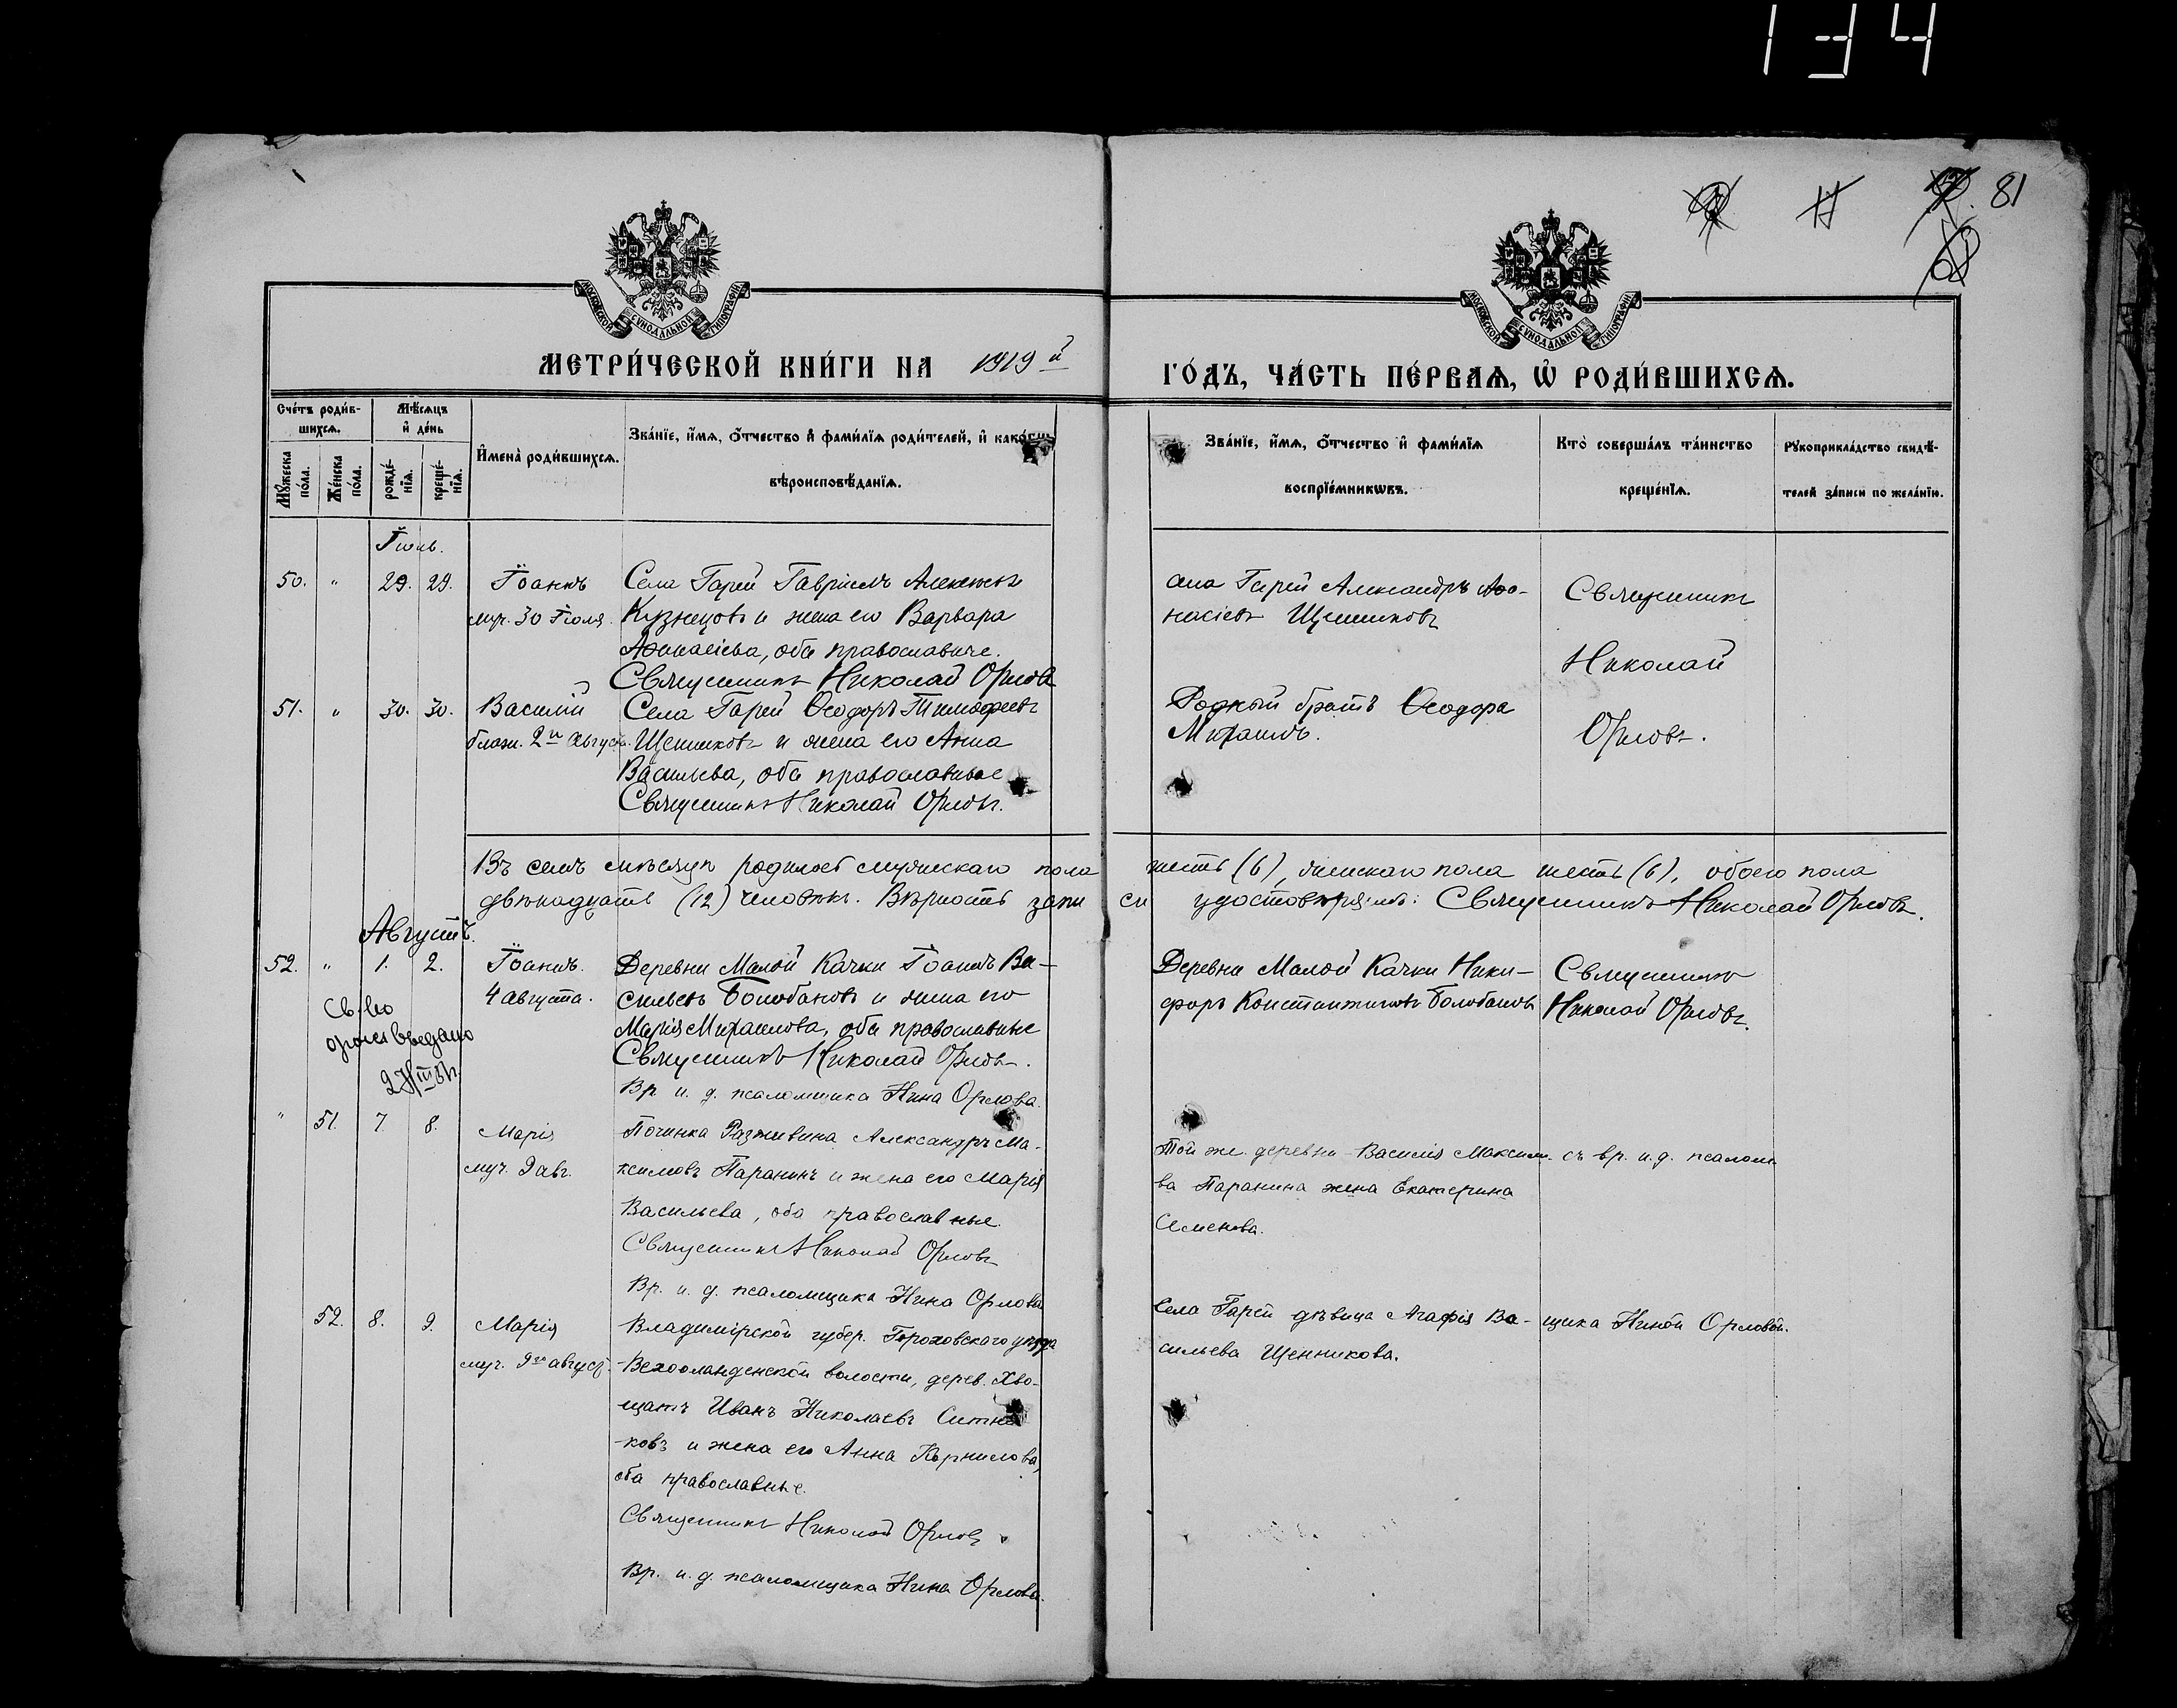 134
81
МОСКОВСКОЙ СУНОДАЛЬНОЙ ТИПОГРАФІИ
МОСКОВСКОЙ СУНОДАЛЬНОЙ ТИПОГРАФІИ
МЕТРИ́ЧЕСКОЙ КНИ́ГИ НА 1919 й
ГО́ДЪ, ЧА́СТЬ ПЕ́РВАѦ, Ѡ҆ РОДИ́ВШИХСѦ.
Сче́тъ роди́в-
шихсѧ.
Мѣ́сѧцъ
и҆ де́нь
Мꙋ́жеска по́ла.
Же́нска по́ла.
рожде́-
нїѧ.
креще́-
нїѧ.
И҆мена̀ роди́вшихсѧ.
Зва́нїе, и҆́мѧ, ѻ҆́тчество и҆ фами́лїѧ роди́телей, и҆ како́гѡ
вѣроисповѣ́данїѧ.
Зва́нїе, и҆́мѧ, ѻ҆́тчество и҆ фами́лїѧ
воспрїе́мникѡвъ.
Кто̀ соверша́лъ та́инство
креще́нїѧ.
Рꙋкоприкла́дство свидѣ́-
телей за́писи по жела́нїю.
Іюль.
50. " 29. 29. Іоаннъ
муч. 30 Іюля.
Села Гарей Гавріилъ Алексѣевъ
Кузнецовъ и жена его Варвара
Аѳанасіева, оба православные.
Священникъ Николай Орловъ
села Гарей Александръ Аѳа-
насіевъ Щенниковъ
Священникъ
Николай
Орловъ.
51. " 30. 30. Василій
блаж. 2го Августа.
Села Гарей Ѳеодоръ Тимоѳеевъ
Щенниковъ и жена его Анна
Васильева, оба православные
Священникъ Николай Орловъ.
Родный братъ Ѳеодора
Михаилъ.
Въ семъ мѣсяцѣ родилось мужескаго пола шесть (6), женскаго пола шесть (6), обоего пола
двѣнадцать (12) человѣкъ. Вѣрность записи удостовѣряемъ: Священникъ Николай Орловъ.
Августъ.
52. " 1. 2. Іоаннъ.
4 августа.
Св-во
2
Деревни Малой Качки Іоаннъ Ва-
сильевъ Болобановъ и жена его
Марія Михаилова, оба православные
Священникъ Николай Орловъ.
Вр. и. д. псаломщика Нина Орлова.
Деревни Малой Качки Ники-
форъ Константиновъ Болобановъ
Священникъ
Николай Орловъ.
" 51. 7. 8. Марія
муч. 9 авг.
Починка Разживина Александръ Ма-
ксимовъ Паранинъ и жена его Марія
Васильева, оба православные.
Священникъ Николай Орловъ
Вр. и. д. псаломщика Нина Орлова
Той же деревни Василія Максимо-
ва Паранина жена Екатерина
Семенова.
съ вр. и. д. псалом-
52. 8. 9. Марія
муч. 9го август.
Владимірской губер. Гороховского уѣзда
волости, дерев. Хво-
щать Иванъ Николаевъ Ситни-
-ковъ и жена его Анна Корнилова,
оба православные.
Священникъ Николай Орловъ
Вр. и. д. псаломщика Нина Орлова.
Села Гарей дѣвица Агафія Ва-
сильева Щенникова.
щика Ниной Орловой.